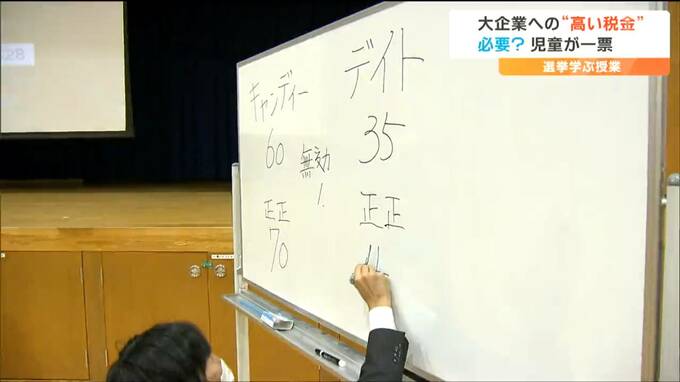 大企業への“高い税金”
必要？ 児童が一票
選挙学ぶ授業
28
キャンディー
60
無効
正正
70
デイト
35
正正